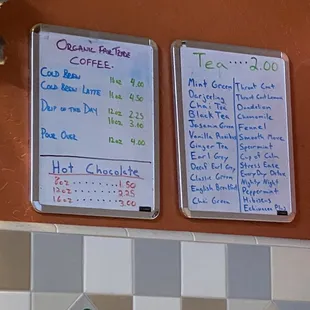 Organic Fair Trade
COFFEE.
Cold Brew 16oz 4.00
Cold Brew Latte
16oz 4.50
Drip of the Day
12oz 2.25
16oz 3.00
Pour Over 12oz 4.00
Hot Chocolate
8oz ...... 1.50
12oz ...... 2.25
16oz ...... 3.00
Tea .... 2.00
Mint Green
Darjeeling
Chai Tea
Black Tea
Jasmine Green
Vanilla Rooibos
Ginger Tea
Earl Grey
Decaf Earl Grey
Classic Green
English Breakfast
Chai Green
Throat Coat
Throat Coat Lemon
Dandelion
Chamomile
Fennel
Smooth Move
Spearmint
Cup of Calm
Stress Ease
EveryDay Detox
Nighty Night
Peppermint
Hibiscus
Echinacea Plus